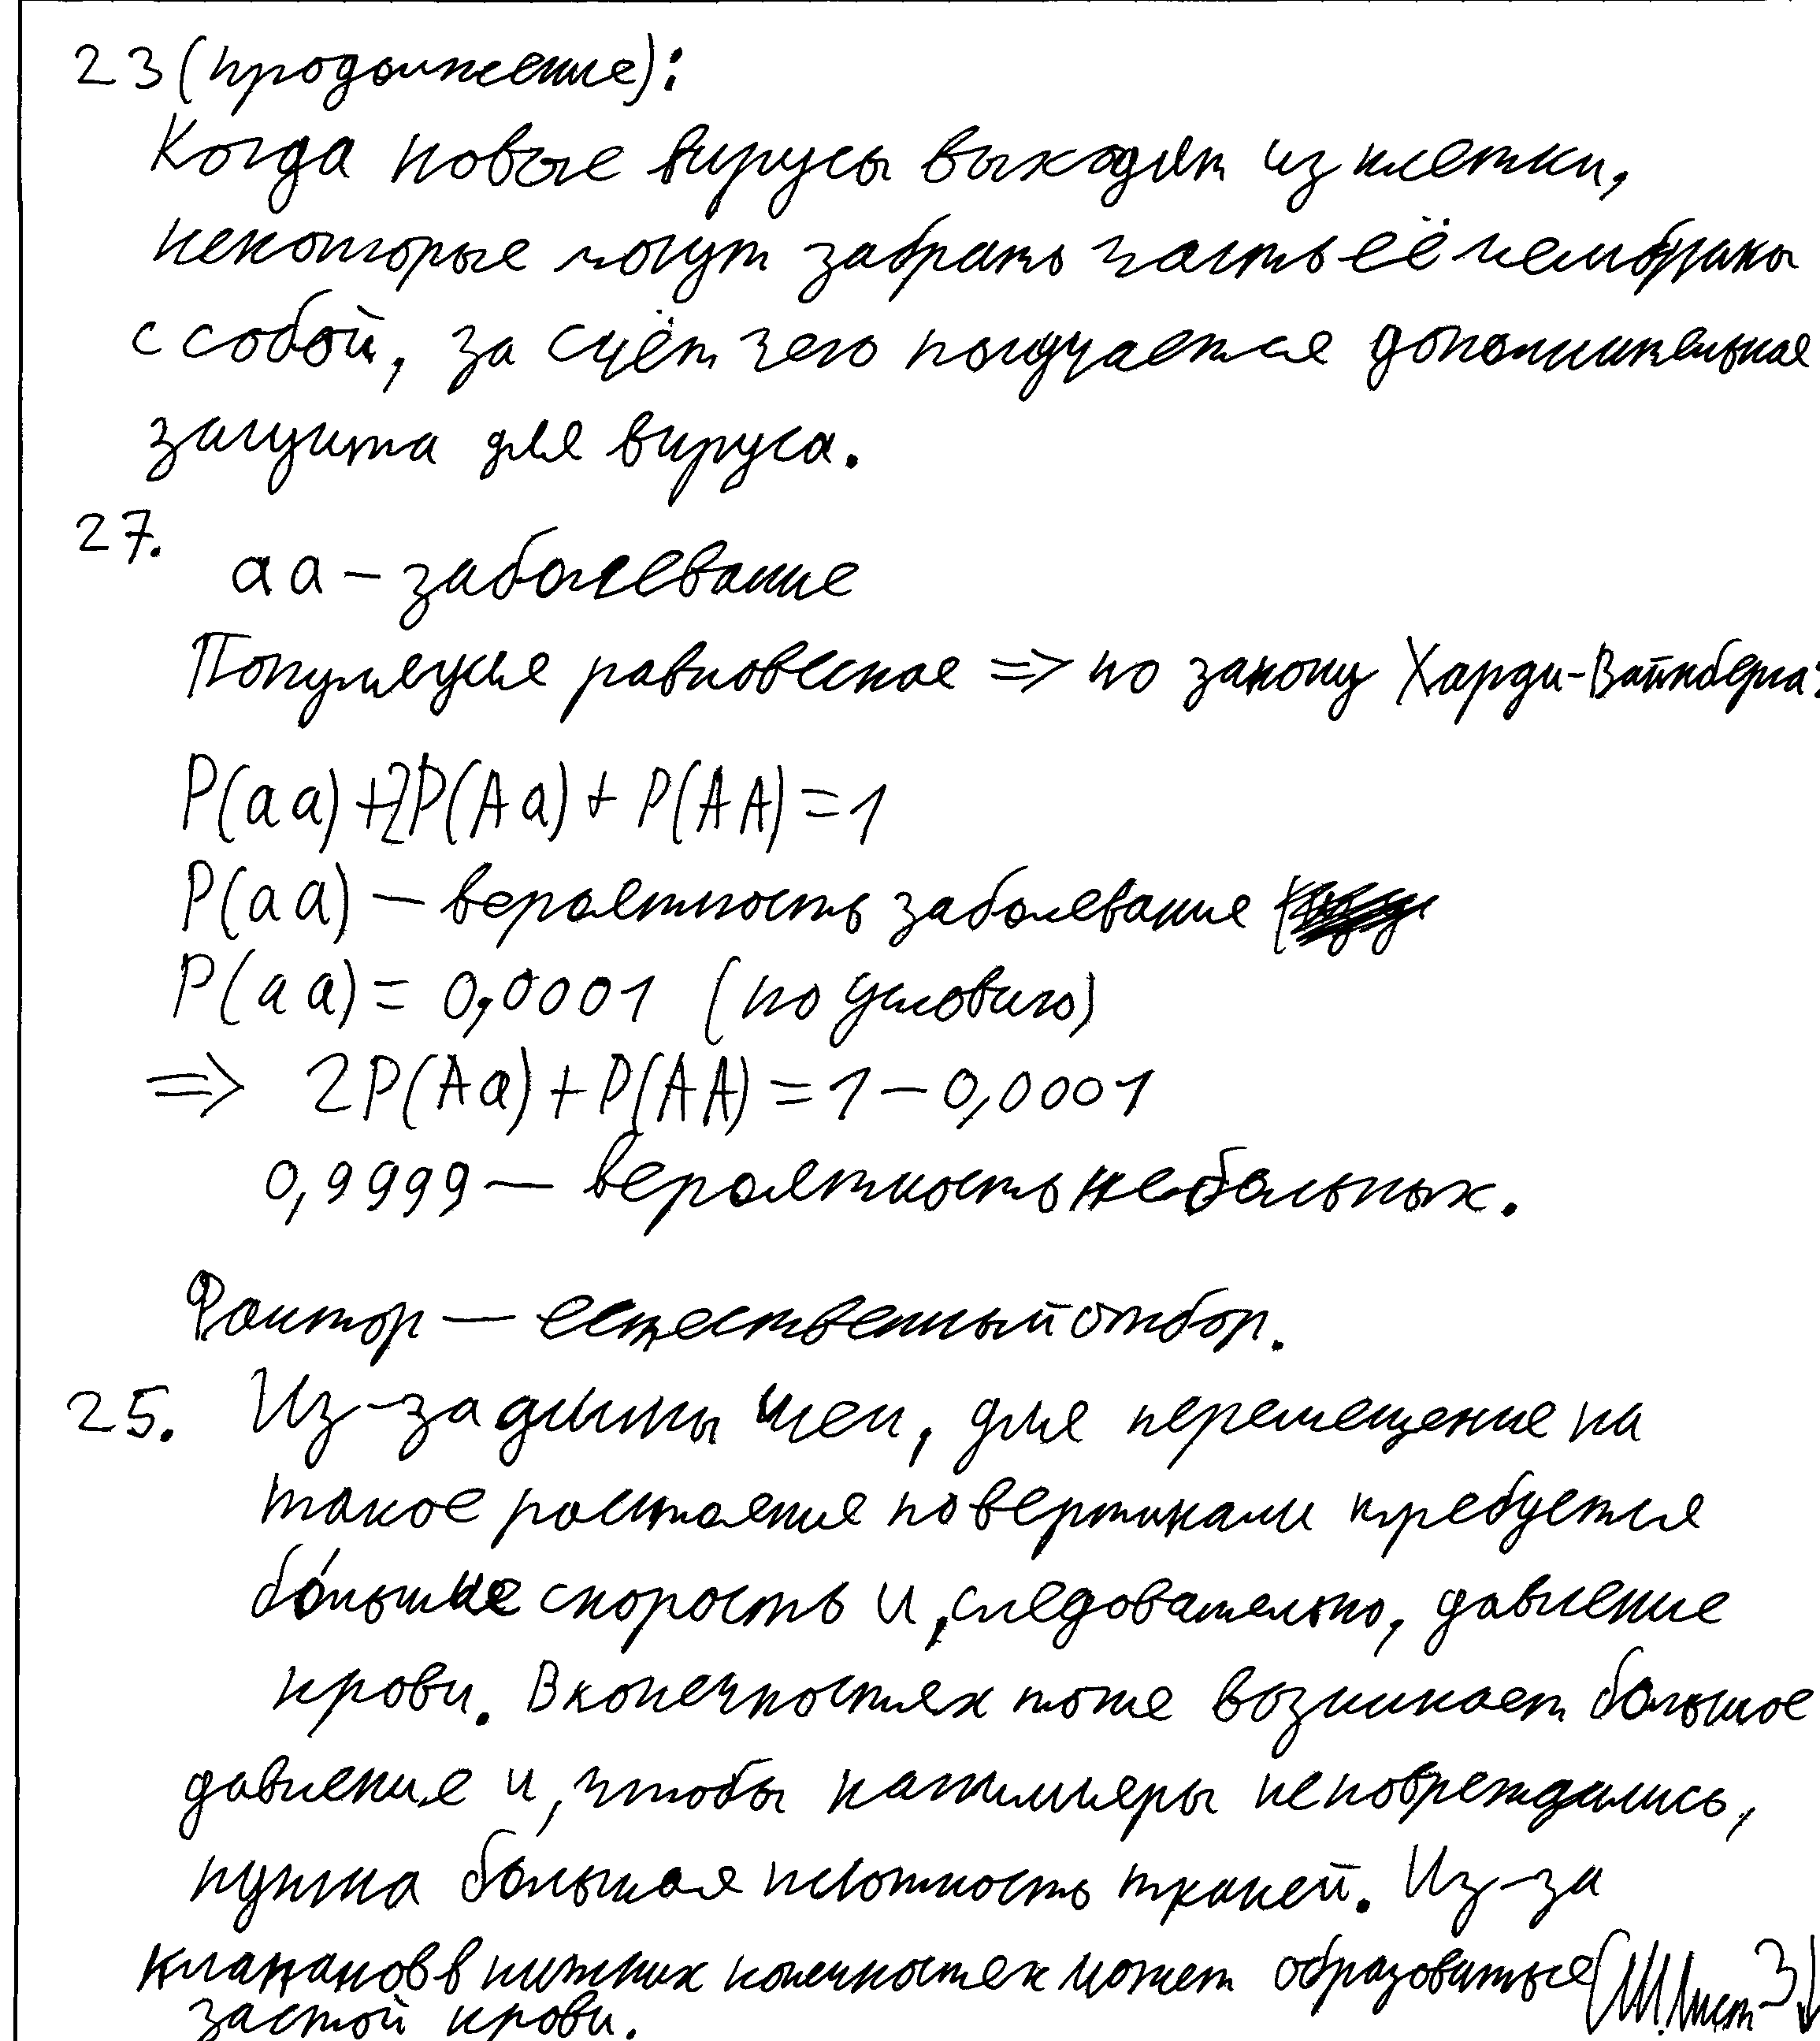 23 (продолжение):
Когда новые вирусы выходят из клетки,
некоторые могут забрать часть её мембраны
с собой, за счёт чего получается дополнительная
защита для вируса.
27.
аа – заболевание
Популяция равновесная => по закону Харди-Вайнберга:
P(aa) + 2P(Aa) + P(AA) = 1
P(aa) – вероятность заболевания
P(aa) = 0,0001 (по условию)
=> 2P(Aa) + P(AA) = 1 – 0,0001
0,9999 – вероятность небольных.
Фактор – естественный отбор.
25. Из-за длины шеи, для перемещения на
такое расстояние по вертикали требуется
бо́льшая скорость и, следовательно, давление
крови. В конечностях тоже возникает большое
давление и, чтобы капилляры не повреждались,
нужна большая плотность тканей. Из-за
клапанов в нижних конечностях может образоваться
застой крови.
Лист 3↓